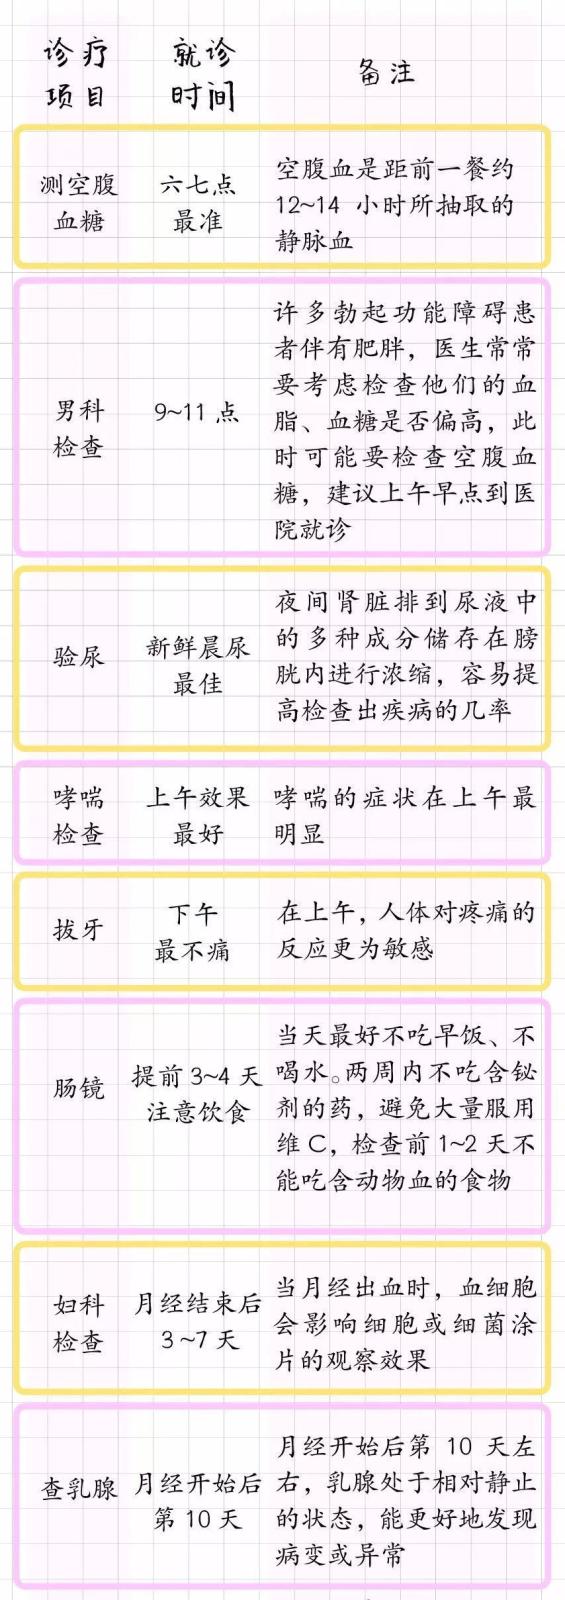 诊疗
项目
就诊
时间
备注
测空腹
血糖
六七点
最准
空腹血是距前一餐约
12~14 小时所抽取的
静脉血
男科
检查
9~11 点
许多勃起功能障碍患
者伴有肥胖，医生常常
要考虑检查他们的血
脂、血糖是否偏高，此
时可能要检查空腹血
糖，建议上午早点到医
院就诊
验尿
新鲜晨尿
最佳
夜间肾脏排到尿液中
的多种成分储存在膀
胱内进行浓缩，容易提
高检查出疾病的几率
哮喘
检查
上午效果
最好
哮喘的症状在上午最
明显
拔牙
下午
最不痛
在上午，人体对疼痛的
反应更为敏感
肠镜
提前 3~4 天
注意饮食
当天最好不吃早饭、不
喝水。两周内不吃含铋
剂的药，避免大量服用
维 C，检查前 1~2 天不
能吃含动物血的食物
妇科
检查
月经结束后
3~7 天
当月经出血时，血细胞
会影响细胞或细菌涂
片的观察效果
查乳腺
月经开始后
第 10 天
月经开始后第 10 天左
右，乳腺处于相对静止
的状态，能更好地发现
病变或异常